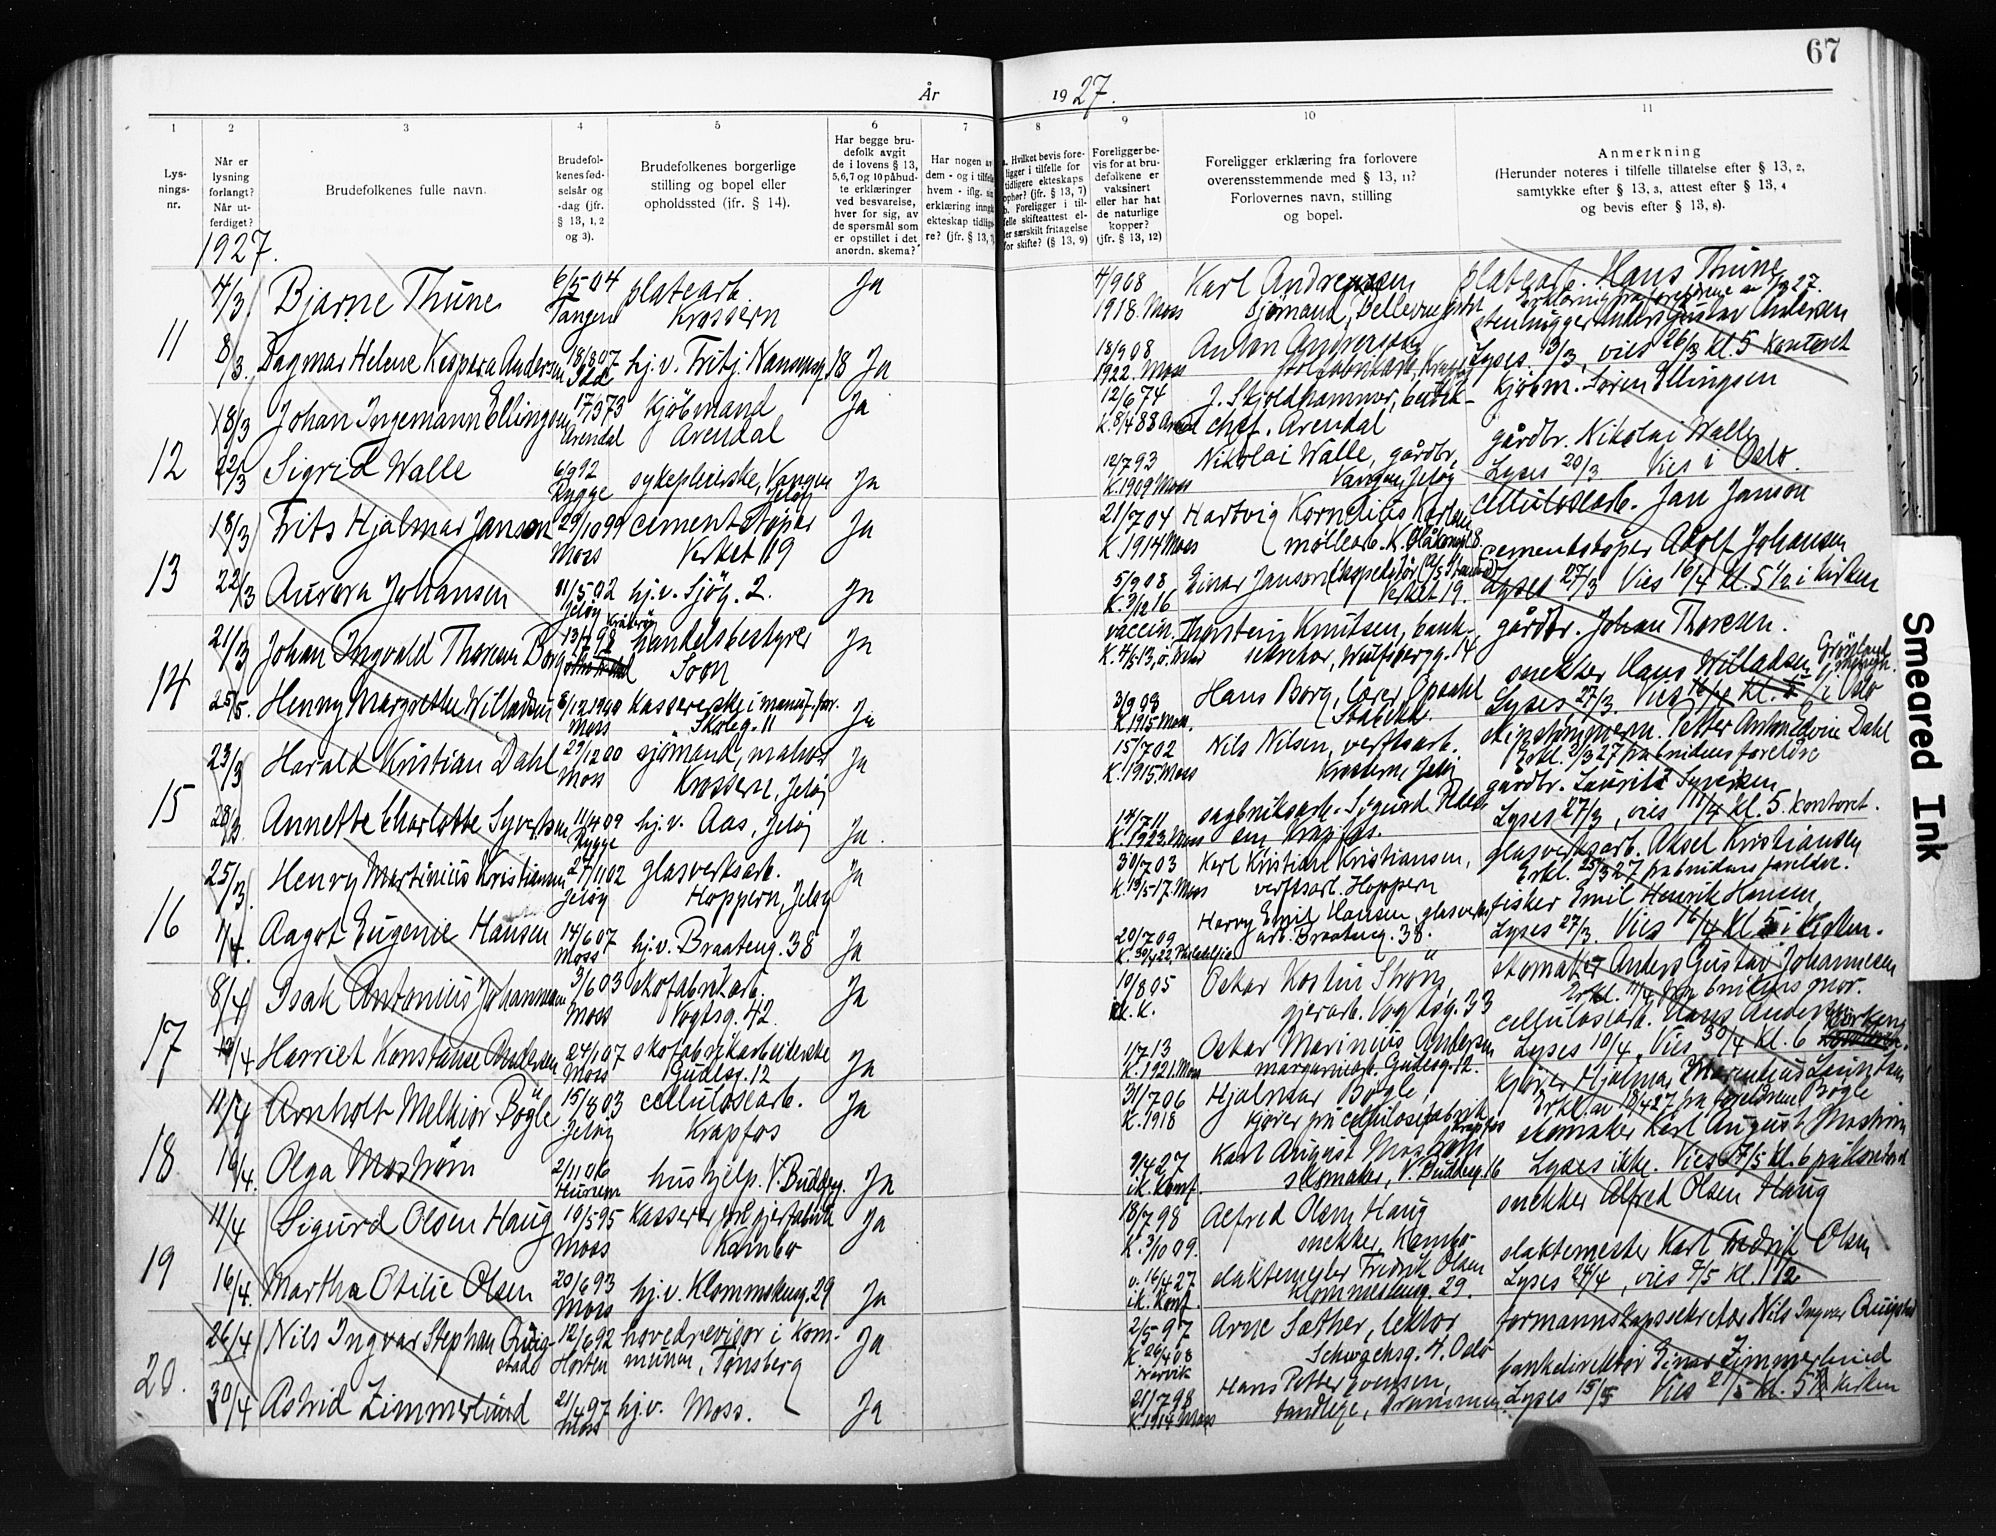 67
År 1927.
1 2 3 4 5 6 7 8 9 10 11
Lys-
nings-
nr.
Når er
lysning
forlangt?
Når ut-
ferdiget?
Brudefolkenes fulle navn.
Brudefol-
kenes fød-
selsår og
-dag (jfr.
§ 13, 1, 2
og 3).
Brudefolkenes borgerlige
stilling og bopel eller
opholdssted (jfr. § 14).
Har begge bru-
defolk avgit
de i lovens § 13,
5, 6, 7 og 10 påbud-
te erklæringer
ved besvarelse,
hver for sig, av
de spørsmål som
er opstillet i det
anordn. skema?
Har nogen av
dem - og i tilfelle
hvem - iflg. sin
erklæring inngått
ekteskap tidlige-
re? (jfr. § 13,
a. Hvilket bevis fore-
ligger i tilfelle for
tidligere ekteskaps
ophør? (jfr. § 13, 7)
b. Foreligger i til-
felle skifteattest el-
ler særskilt fritagelse
for skifte? (§ 13, 9)
Foreligger be-
vis for at bru-
defolkene er
vaksinert
eller har hat
de naturlige
kopper?
(jfr. § 13, 12)
Foreligger erklæring fra forlovere
overensstemmende med § 13, 11?
Forlovernes navn, stilling
og bopel.
Anmerkning
(Herunder noteres i tilfelle tillatelse efter § 13, 2,
samtykke efter § 13, 3, attest efter § 13, 4
og bevis efter § 13, 8).
1927.
4/3 Bjarne Thune 6/5 04 platearb. Ja 4/9 08 Karl Andresen platearb. Hans Thune
Tangen Krossern 1918. Moss sjømand, Erklæring fra foreldrene av 27.
stenhugger Anders Gustav Andersen
11 8/3. Dagmar Helene Andersen 18/8 07 hj. v. Fritj. Nansensg. 18 Ja 18/9 08 Anton Andreassen Lyses 13/3, vies 26/3 kl. 5 kontoret
1922. Moss
18/3 Johan Ingemann Ellingsen 17/3 73 kjøbmand Ja 12/6 74 J. Skjoldhammer, kjøbm. Søren Ellingsen
Arendal Arendal chef. Arendal
gårdbr. Nikolai Walle
12 22/3 Sigrid Walle 6/9 92 sykepleierske, Vangen Ja 12/7 93 Nikolai Walle, gårdbr. Lyses 20/3 Vies i Oslo.
Rygge Jeløy K. 1909 Moss Vangen, Jeløy
18/3 Frits Hjalmar Janson 29/10 99 cementstøper Ja 21/7 04 Hartvig Kornelius Karlsen cellulosearb. Jan Janson
Moss Verket 119 K. 1914 Moss møllearb.
cementstøper Adolf Johansen
13 22/3 Aurora Johansen 11/5 02 hj. v. Sjøg. 2. Ja 5/9 08 Einar Janson Lyses 27/3 Vies 16/4 kl. 5 1/2 i kirken
Jeløy K. 3/12 16 Verket 19.
21/3 Johan Ingvald Thoresen Borg 13/7 98 handelsbestyrer Ja vaccin. Thorstein Knutsen, bank- gårdbr. Johan Thoresen.
Soon sekretær, Wulfsbergg. 14,
snekker Hans Willadsen
14 25/3. Henny Margrethe Willadsen 8/12 1900 kassererske i manuf. for. Ja 3/9 08 Hans Borg, lærer Opsahl Lyses 27/3. Vies 16/4 i Oslo
Moss Skoleg. 11 K. 1915 Moss. Stabekk.
23/3 Harald Kristian Dahl 29/12 00 sjømand, Ja 15/7 02 Nils Nilsen, verftsarb. Petter Dahl
Moss Krossern, Jeløy K. 1915 Moss Krossern, Jeløy Erkl. 27 fra brudens foreldre
gårdbr. Laurits Syversen
15 28/3. Annette Charlotte Syversen 11/4 09 hj. v. Aas, Jeløy Ja. 14/7 11 sagbruksarb. Sigurd Lyses 27/3, vies 17/4 kl. 5. kontoret.
Rygge K. 1923. Moss Krapfos.
25/3. Henry Martinius Kristiansen 27/11 02 glasverksarb. Ja 30/7 03 Karl Kristian Kristiansen, glasverksarb. Aksel Kristiansen
Jeløy Hoppern, Jeløy K. 13/5-17. Moss verftsarb. Hoppern Erkl. 25/3 27 fra brudens foreldre.
fisker Emil Henrik Hansen,
16 1/4. Aagot Eugenie Hansen 14/6 07 hj. v. Braateng. 38 Ja 20/7 09 Harry Emil Hansen, glasverks- Lyses 27/3. Vies 16/4 kl 5 i kirken.
Moss arb. Braateng. 38.
8/4 Isak Antonius Johannesen 3/6 03 skofabrikarb. Ja 10/8 05 Oskar Strøm, skomaker Anders Gustav Johannesen
Moss Vogtsg. 42 gjerarb. Vogtsg. 33 Erkl. 11/4 fra brudens mor.
cellulosearb. Hans Andersen
17 13/4 Harriet Konstanse Andersen 24/1 07 skofabrikarbeiderske Ja 1/7 13 Oskar Marinius Andersen Lyses 10/4, Vies 30/4 kl. 6 kirken
Moss Gudesg. 12 K. 1921. Moss margarinarb. Gudesg. 12.
11/4 Arnholt Melkior Bøgle 15/8 03 cellulosearb. Ja 31/7 06 Hjalmar Bøgle, kjører Hjalmar Bøgle
Jeløy Krapfos K. 1918 kjører på cellulosefabrik Krapfos Erkl. av 18/4 27 fra foreldrene
skomaker Karl August Mostrøm
18. 16/4. Olga Mostrøm 2/11 06 hushjelp. V. Buddeg. Ja 9/4 27 Karl August Mostrøm Lyses ikke. Vies 7/5 kl. 6 på kontoret
Hurum ik. konf. skomaker, V. Buddeg. 16
11/4 Sigurd Olsen Haug 10/5 95 kasserer på gjærfabrik Ja 18/7 98 Alfred Olsen Haug snekker Alfred Olsen Haug
Moss Kambo K. 3/10 09. snekker, Kambo
slaktemester Karl Fredrik Olsen
19 16/4. Martha Otilie Olsen 20/6 93 hj. v. Klommesteng. 29 Ja v. 16/4 27 slaktemester Fredrik Olsen Lyses 24/4, vies 7/5 kl. 1 1/2
Moss ik. konf. Klommesteng. 29.
26/4 Nils Ingvar Stephan Quig- 12/6 92 hovedrevisor i kom- Ja 2/5 97 Arne Sæther, lektor formannskapssekretær Nils Ingvar Quigstad
stad Horten munen, Tønsberg K 26/4 08 Schwachsg. 4. Oslo
Narvik bankdirektør Einar Zimmerlund
20. 30/4 Astrid Zimmerlund 21/4 97 hj. v. Moss. Ja 21/7 98 Hans Petter Evensen, Lyses 15/5 Vies 21/5 kl. 5 1/2 kirken
Moss K. 1914 Moss tandlege, Drammen.
Smeared Ink